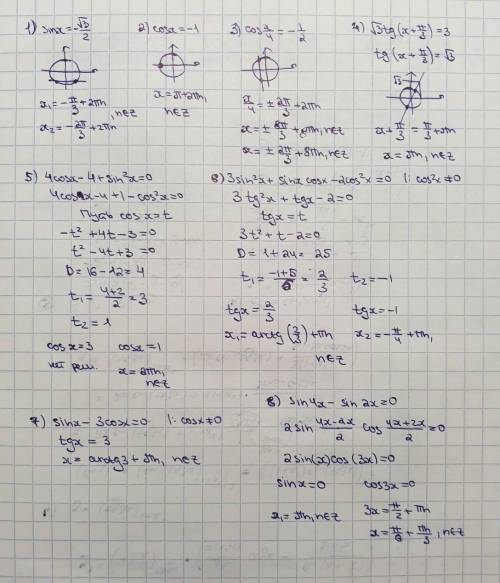 1) sinx = -√3/2
x₁ = -π/3 + 2πn
x₂ = -2π/3 + 2πn , n∈Z
2) cosx = -1
x = π + 2πn,
n∈Z
3) cos x/4 = -1/2
x/4 = ± 2π/3 + 2πn
x = ± 8π/3 + 8πn, n∈Z
x = ± 2π/3 + 8πn, n∈Z
4) √3 tg(x+π/3) = 3
tg(x+π/3) = √3
√3
x + π/3 = π/3 + πn
x = πn, n∈Z
5) 4cosx - 4 + sin²x = 0
4cosx - 4 + 1 - cos²x = 0
Пусть cosx = t
-t² + 4t - 3 = 0
t² - 4t + 3 = 0
D = 16 - 12 = 4
t₁ = (4+2)/2 = 3
t₂ = 1
cosx = 3 cosx = 1
нет реш. x = 2πn,
n∈Z
6) 3sin²x + sinx cosx - 2cos²x = 0 |: cos²x ≠ 0
3tg²x + tgx - 2 = 0
tgx = t
3t² + t - 2 = 0
D = 1 + 24 = 25
t₁ = (-1+5)/6 = 2/3 t₂ = -1
tgx = 2/3 tgx = -1
x₁ = arctg(2/3) + πn x₂ = -π/4 + πn,
n∈Z
7) sinx - 3cosx = 0 |: cosx ≠ 0
tgx = 3
x = arctg3 + πn, n∈Z
8) sin4x - sin2x = 0
2sin (4x-2x)/2 cos (4x+2x)/2 = 0
2sin(x)cos(3x) = 0
sinx = 0 cos3x = 0
x₁ = πn, n∈Z 3x = π/2 + πn
x = π/6 + πn/3, n∈Z